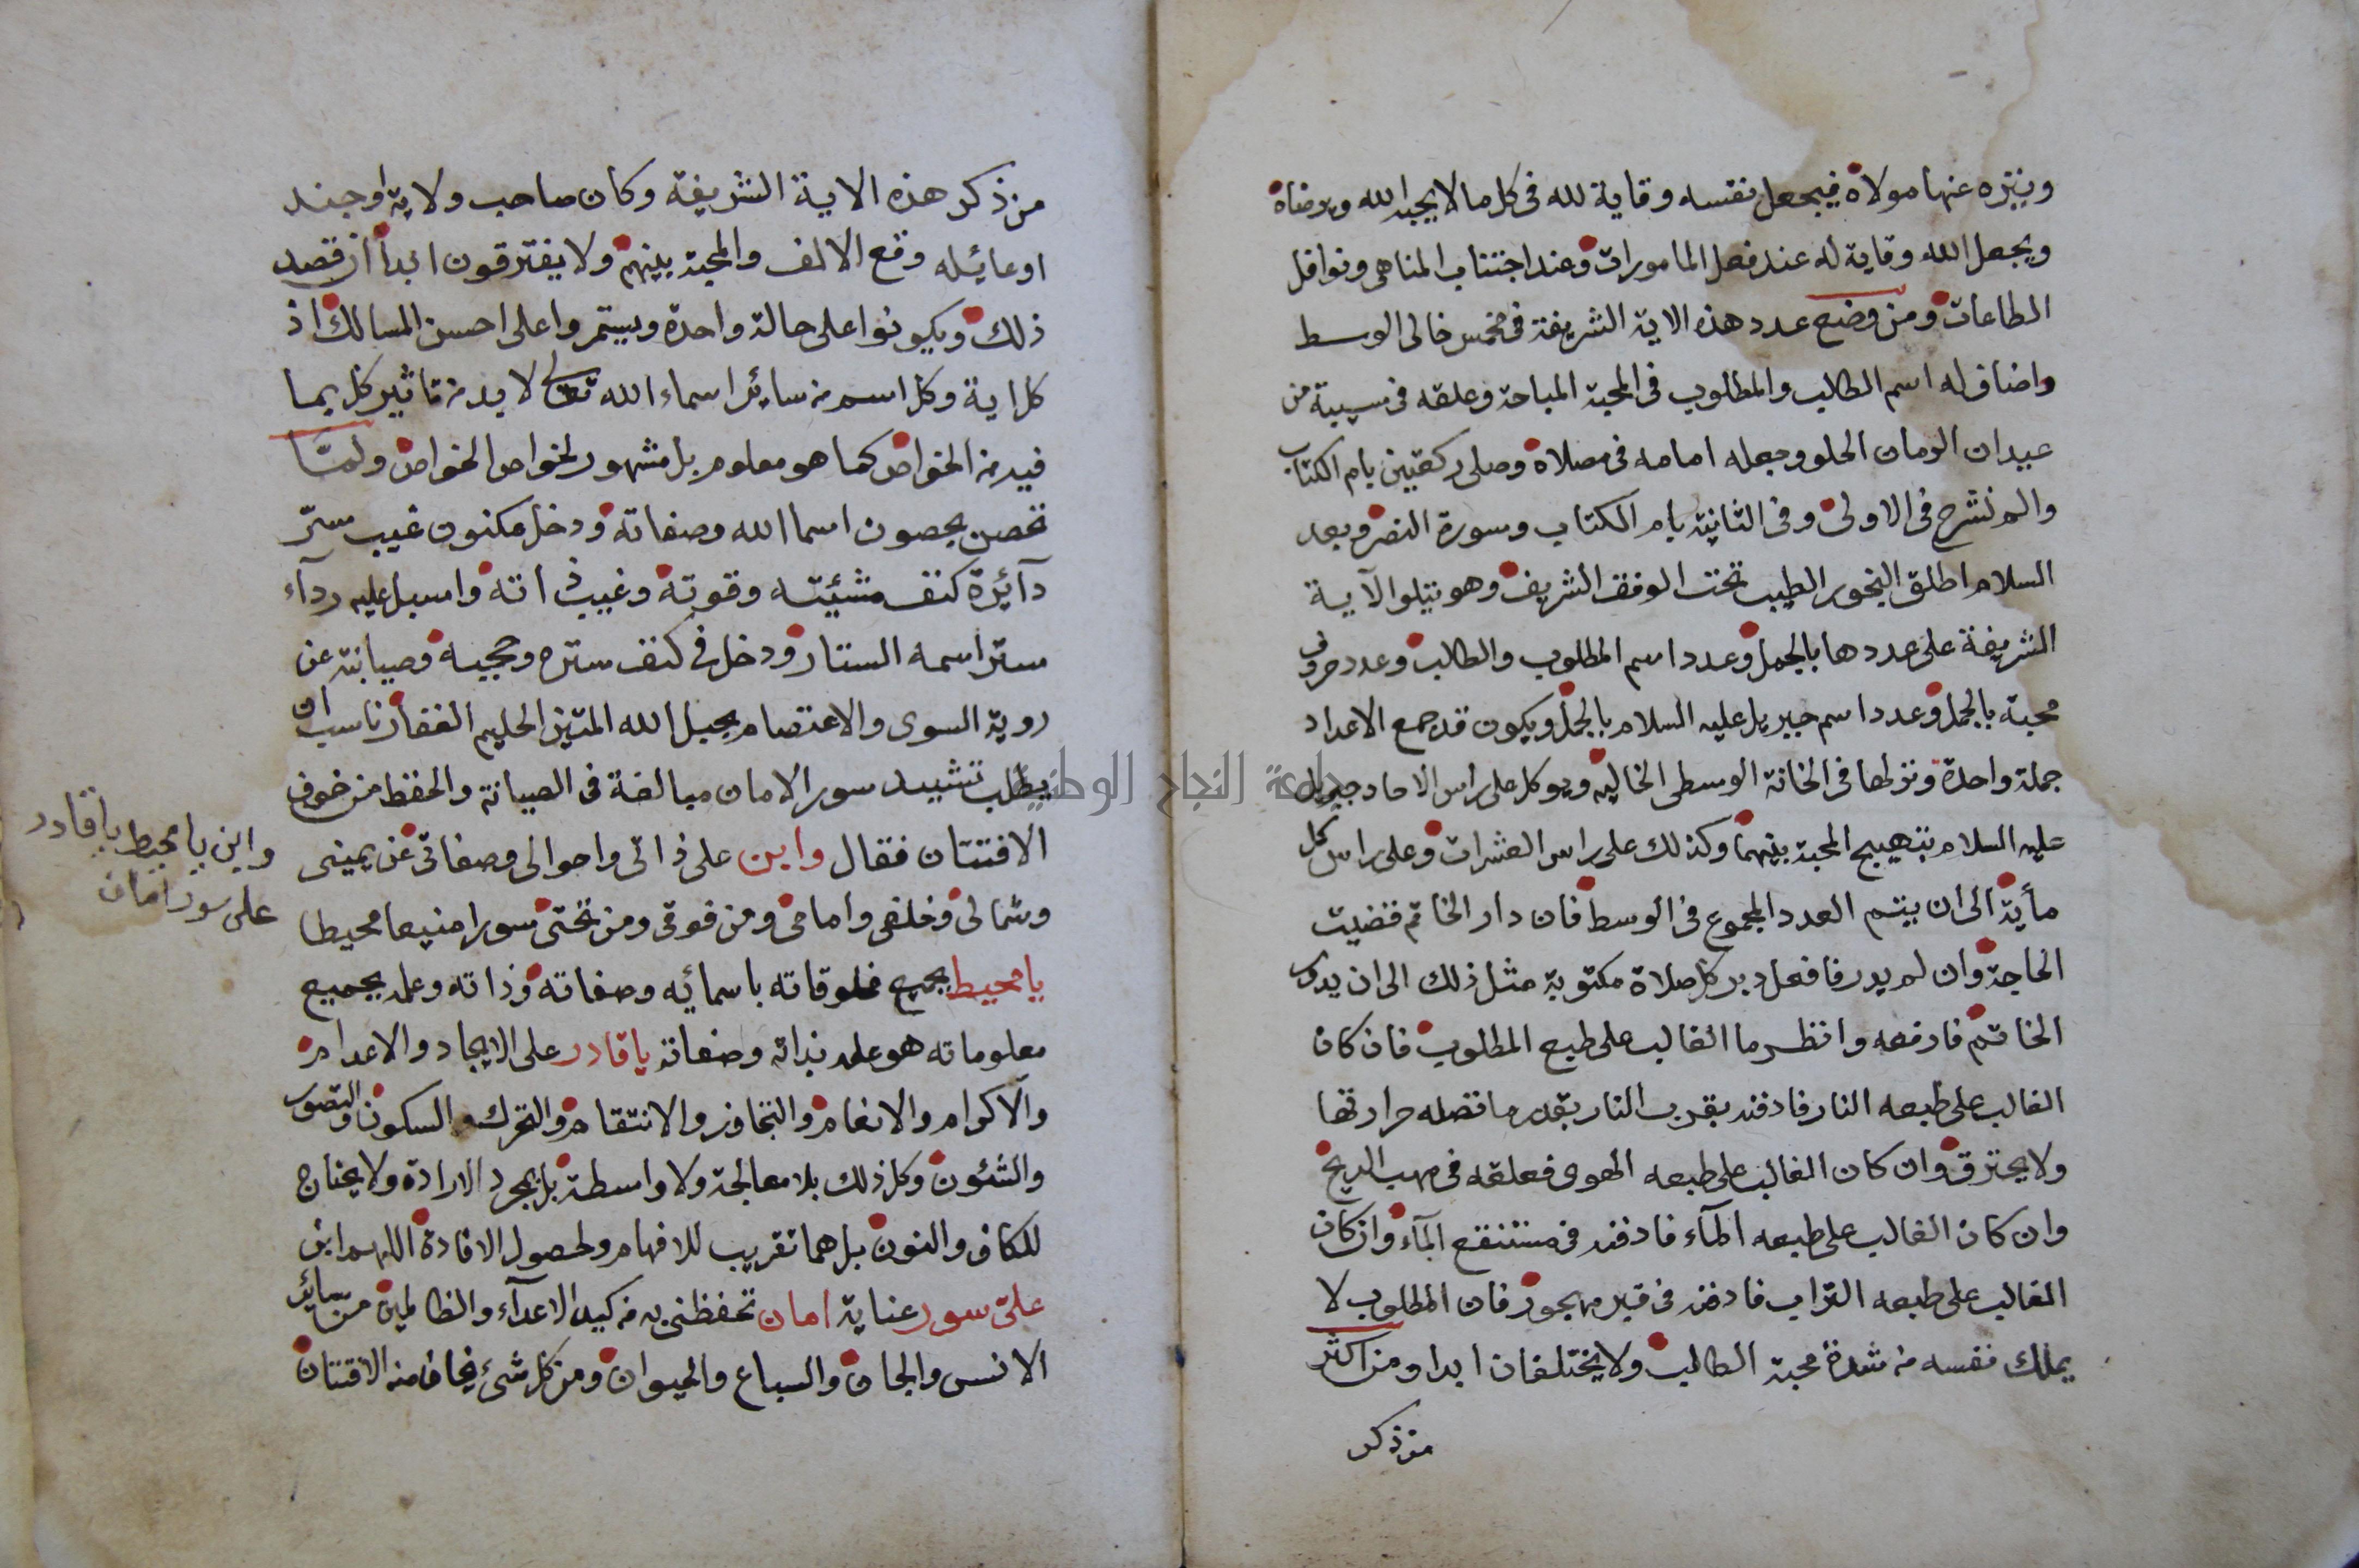 وينزه عنها مولاه فيجعل نفسه وقاية لله في كل ما لا يحبه الله ويرضاه
ويجعل الله وقاية له عند فعل المامورات وعند اجتناب المناهي ونوافل
الطاعات ومن وضع عدد هذه الاية الشريفة في مخمس خالي الوسط
واضاف له اسم الطالب والمطلوب في المحبة المباحة وعلقه في سيبية من
عيدان الرمان الحلو وجعله امامه في مصلاه وصلى ركعتين بام الكتاب
والم نشرح في الاولى وفي الثانية بام الكتاب وسورة النصر وبعد
السلام اطلق البخور الطيب تحت الوفق الشريف وهو يتلو الآية
الشريفة على عددها بالجمل وعدد اسم المطلوب والطالب وعدد حروف
محبة بالجمل وعدد اسم جبريل عليه السلام بالجمل ويكون قد جمع الاعداد
جملة واحدة ونزلها في الخانة الوسطى الخالية ويوكل على راس الاحاد جبريل
عليه السلام بتهييج المحبة بينهما وكذلك على راس العشرات وعلى راس كل
مأية الى ان يتم العدد المجموع في الوسط فان دار الخاتم قضيت
الحاجة وان لم يدر فافعل دبر كل صلاة مكتوبة مثل ذلك الى ان يدور
الخاتم فارفعه وانظر ما الغالب على طبع المطلوب فان كان
الغالب على طبعه النار فادفنه بقرب النار بقدر ما تصله حرارتها
ولا يحترق وان كان الغالب على طبعه الهوى فعلقه في مهب الريح
وان كان الغالب على طبعه المآء فادفنه في مستنقع المآء وان كان
الغالب على طبعه التراب فادفنه في قبر مهجور فان المطلوب لا
يملك نفسه من شدة محبة الطالب ولا يختلفان ابدا ومن اكثر
من ذكر
من ذكر هذه الاية الشريفة وكان صاحب ولاية او جند
او عائيله وقع الالف والمحبة بينهم ولا يفترقون ابدا ان قصد
ذلك ويكونوا على حالة واحدة ويستمروا على احسن المسالك اذ
كل اية وكل اسم من سائر اسماء الله تعالى لا بد من تاثير كل بما
فيه من الخواص كما هو معلوم بل مشهور لخواص الخواص ولمّا
تحصن بحصون اسما الله وصفاته ودخل مكنون غيب سرّ
دآئرة كنف مشيئته وقوته وغيب ذاته واسبل عليه ردآء
ستر اسمه الستار ودخل في كنف ستره وحجبه وصيانته عن
روية السوى والاعتصام بحبل الله المتين الحليم الغفار ناسب ان
يطلب تشييد سور الامان مبالغة في الصيانة والحفظ من خوف
الافتتان فقال وابن على ذاتي واحوالي وصفاتي عن يميني
وشمالي وخلفي وامامي ومن فوقي ومن تحتي سورا منيعا محيطا
يا محيط بجميع مخلوقاته باسمائه وصفاته وذاته وعلمه بجميع
معلوماته هو علمه بذاته وصفاته يا قادر على الايجاد والاعدام
والآكرام والانعام والتجاوز والانتقام والتحرك والسكون والتصور
والشئون وكل ذلك بلا معالجة ولا واسطة بل بمجرد الارادة ولا يحتاج
للكاف والنون بل هما تقريب للافهام ولحصول الافادة اللهم ابن
علىّ سور عناية امان تحفظني به من كيد الاعدآء والظالمين من سائر
الانس والجان والسباع والحيوان ومن كل شيء يخاف منه الافتتان
وابن يا محيط يا قادر
على سور امان
جامعة النجاح الوطنية